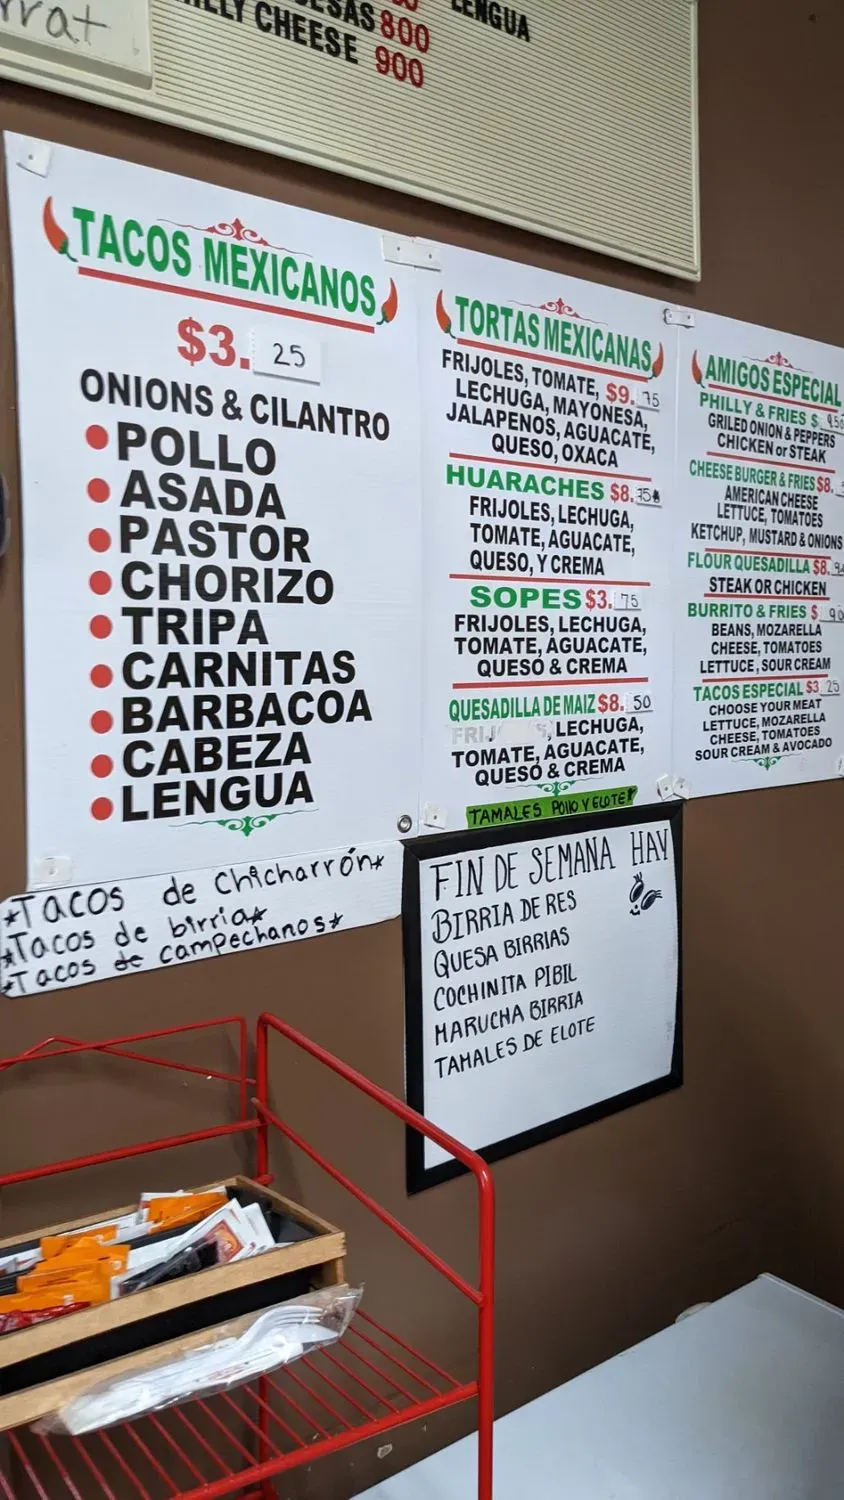 LENGUA
800
CHEESE 900
TACOS MEXICANOS
$3. 25
ONIONS & CILANTRO
POLLO
ASADA
PASTOR
CHORIZO
TRIPA
CARNITAS
BARBACOA
CABEZA
LENGUA
*Tacos de Chicharrón*
*Tacos de birria*
*Tacos de campechanos*
TORTAS MEXICANAS
FRIJOLES, TOMATE, $9. 75
LECHUGA, MAYONESA,
JALAPENOS, AGUACATE,
QUESO, OXACA
HUARACHES $8. 75
FRIJOLES, LECHUGA,
TOMATE, AGUACATE,
QUESO, Y CREMA
SOPES $3. 75
FRIJOLES, LECHUGA,
TOMATE, AGUACATE,
QUESO & CREMA
QUESADILLA DE MAIZ $8. 50
LECHUGA,
TOMATE, AGUACATE,
QUESO & CREMA
TAMALES POllO Y ELOTE
FIN DE SEMANA HAY
BIRRIA DE RES
QUESA BIRRIAS
COCHINITA PIBIL
MARUCHA BIRRIA
TAMALES DE ELOTE
AMIGOS ESPECIAL
PHILLY & FRIES $
GRILED ONION & PEPPERS
CHICKEN or STEAK
CHEESE BURGER & FRIES $8.
AMERICAN CHEESE
LETTUCE, TOMATOES
KETCHUP, MUSTARD & ONIONS
FLOUR QUESADILLA $8.
STEAK OR CHICKEN
BURRITO & FRIES $
BEANS, MOZARELLA
CHEESE, TOMATOES
LETTUCE, SOUR CREAM
TACOS ESPECIAL $3 25
CHOOSE YOUR MEAT
LETTUCE, MOZARELLA
CHEESE, TOMATOES
SOUR CREAM & AVOCADO